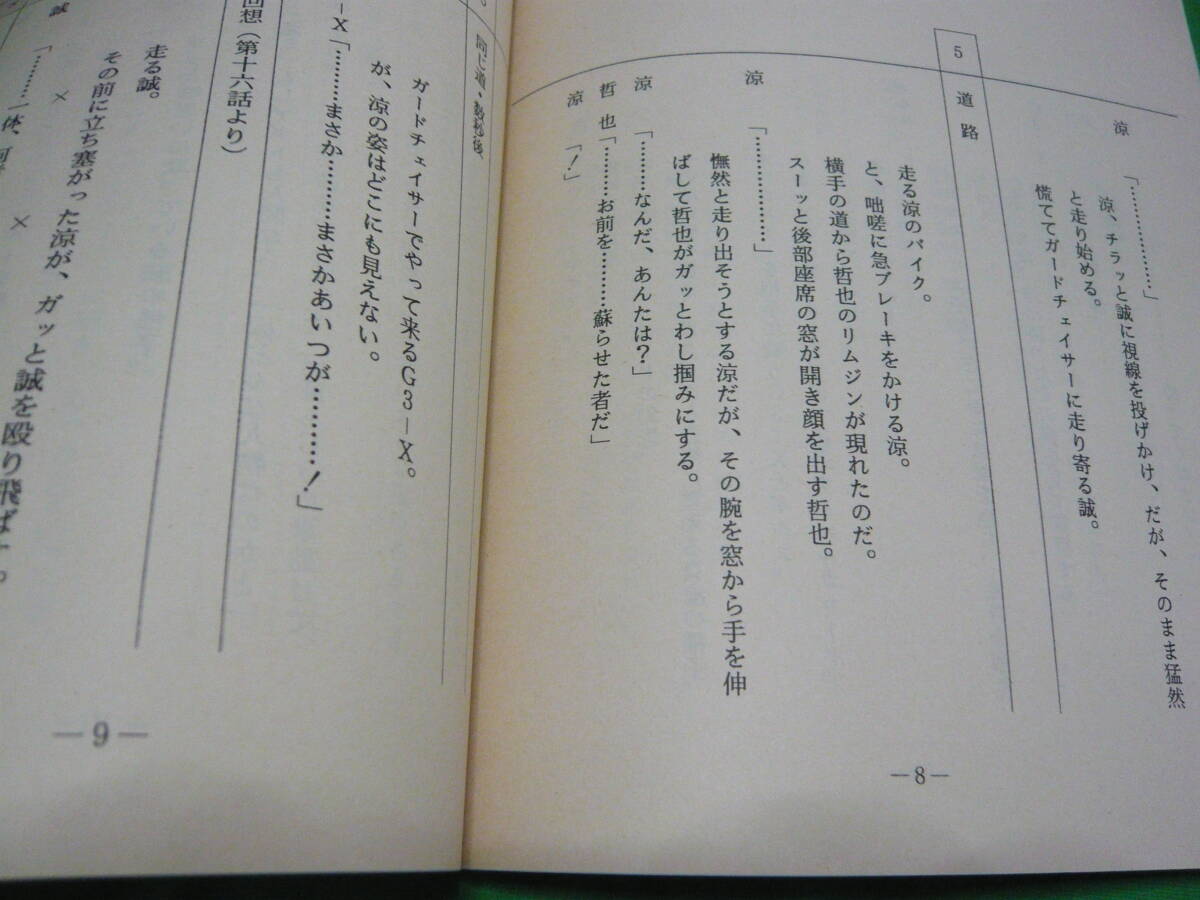 涼「………………」
涼、チラッと誠に視線を投げかけ、だが、そのまま猛然
と走り始める。
慌ててガードチェイサーに走り寄る誠。
5 道路
走る涼のバイク。
と、咄嗟に急ブレーキをかける涼。
横手の道から哲也のリムジンが現れたのだ。
スーッと後部座席の窓が開き顔を出す哲也。
涼「………………」
憮然と走り出そうとする涼だが、その腕を窓から手を伸
ばして哲也がガッとわし掴みにする。
涼「………なんだ、あんたは?」
哲也「………お前を………蘇らせた者だ」
涼「!」
—8—
同じ道・数秒後
ガードチェイサーでやって来るG3-X。
が、涼の姿はどこにも見えない。
-X「………まさか………まさかあいつが………!」
回想(第十六話より)
走る誠。
その前に立ち塞がった涼が、ガッと誠を殴り飛ばす。
× ×
誠「………一体、何
—9—